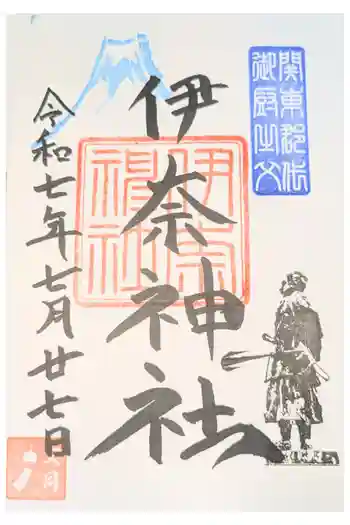 関東郡代
御厨之父
伊奈神社
伊奈神社
令和七年七月廿七日